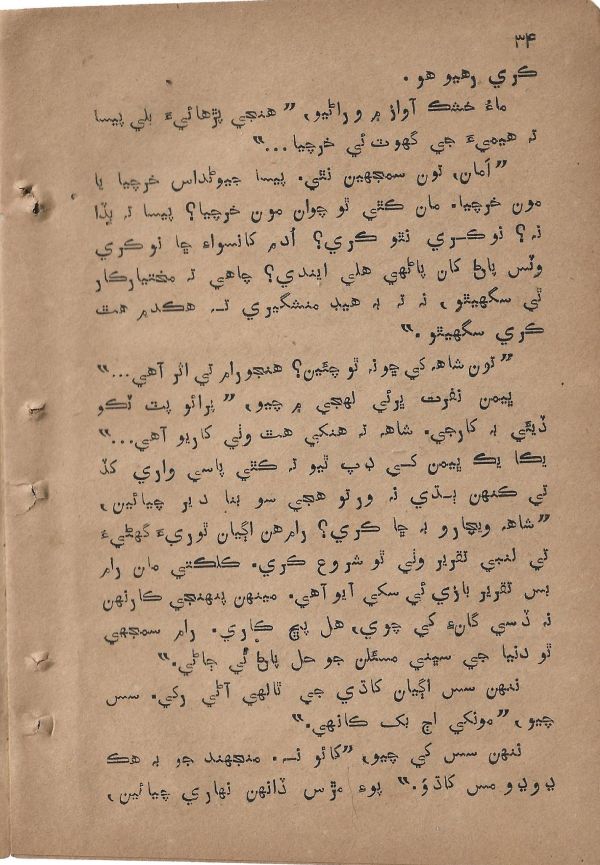 ۳۴
ڪري رهيو هو.
ماءُ خشڪ آواز ۾ وراڻيو، ”هنجي پڙهائيءَ بلي پيسا
نہ هيميءَ جي گهوٽ ئي خرچيا...“
”اَمان، تون سمجهين نٿي. پيسا جيوڻداس خرچيا يا
مون خرچيا. مان ڪٿي ٿو چوان مون خرچيا؟ پيسا تہ ڀڏا
نہ؟ نوڪري نٿو ڪري؟ اُدم ڪانسواءِ ڇا نوڪري
وٽس پاڻ کان پاڻهي هلي ايندي؟ چاهي تہ مختيارڪار
ٿي سگهيٿو، نہ تہ بہ هيڊ منشگيري تہ هڪدم هٿ
ڪري سگهيٿو.“
”تون شاهہ کي ڇو نہ ٿو چئين؟ هنجو رام تي اثر آهي...“
ڀيمن نفرت ڀرئي لهجي ۾ چيو، ”پرائو پٽ ٽڪو
ڏيئي بہ ڪارجي. شاهہ تہ هنکي هٿ وٺي ڪاريو آهي...“
يڪا يڪ ڀيمن کي ڊپ ٿيو تہ ڪٿي پاسي واري کڏ
تي ڪنهن ٻڌي نہ ورتو هجي سو بنا دير چيائين،
”شاهہ ويچارو بہ ڇا ڪري؟ رام هن اڳيان ٿوريءَ گهڻيءَ
تي لنبي تقرير وٺي ٿو شروع ڪري. ڪلڪتي مان رام
بس تقرير بازي ئي سکي آيو آهي. مينهن پنهنجي ڪارنهن
نہ ڏسي گانءِ کي چوي، هل پڇ ڪاري. رام سمجهي
ٿو دنيا جي سڀني مسئلن جو حل پاڻ ئي ڄاڻي.“
ننهن سس اڳيان کاڌي جي ٿالهي آڻي رکي. سس
چيو، ”مونکي اڄ بک ڪانهي.“
ننهن سس کي چيو، ”کائو نہ. منجهند جو بہ هڪ
ڍوڍو مس کاڌوَ.“ پوءِ مڙس ڏانهن نهاري چيائين،